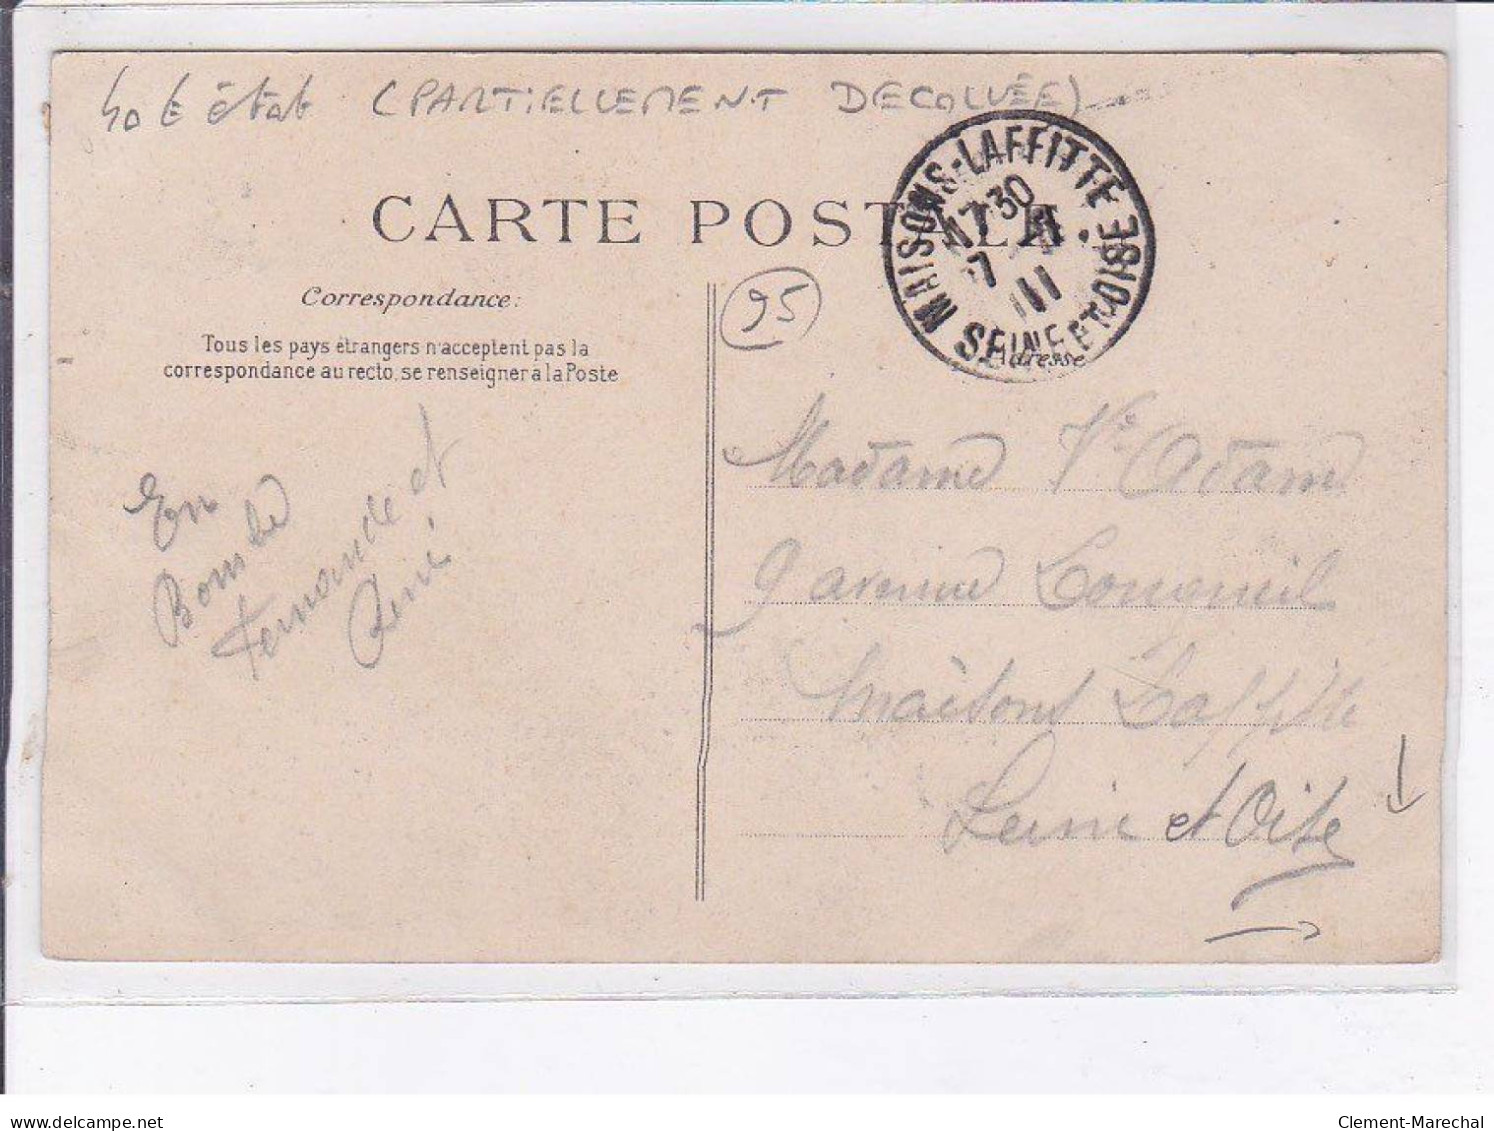 40 € état (PARTIELLEMENT DECOLLÉE)
CARTE POSTALE
MAISONS-LAFFITTE
17 30
7
11
SEINE ET OISE
95
Correspondance:
Tous les pays étrangers n'acceptent pas la
correspondance au recto, se renseigner à la Poste
Adresse
En
Bombe
Fernande et
René
Madame Vve Adam
9 avenue Longueil
Maisons Laffitte
Seine et Oise
delcampe.net
Clement-Marechal